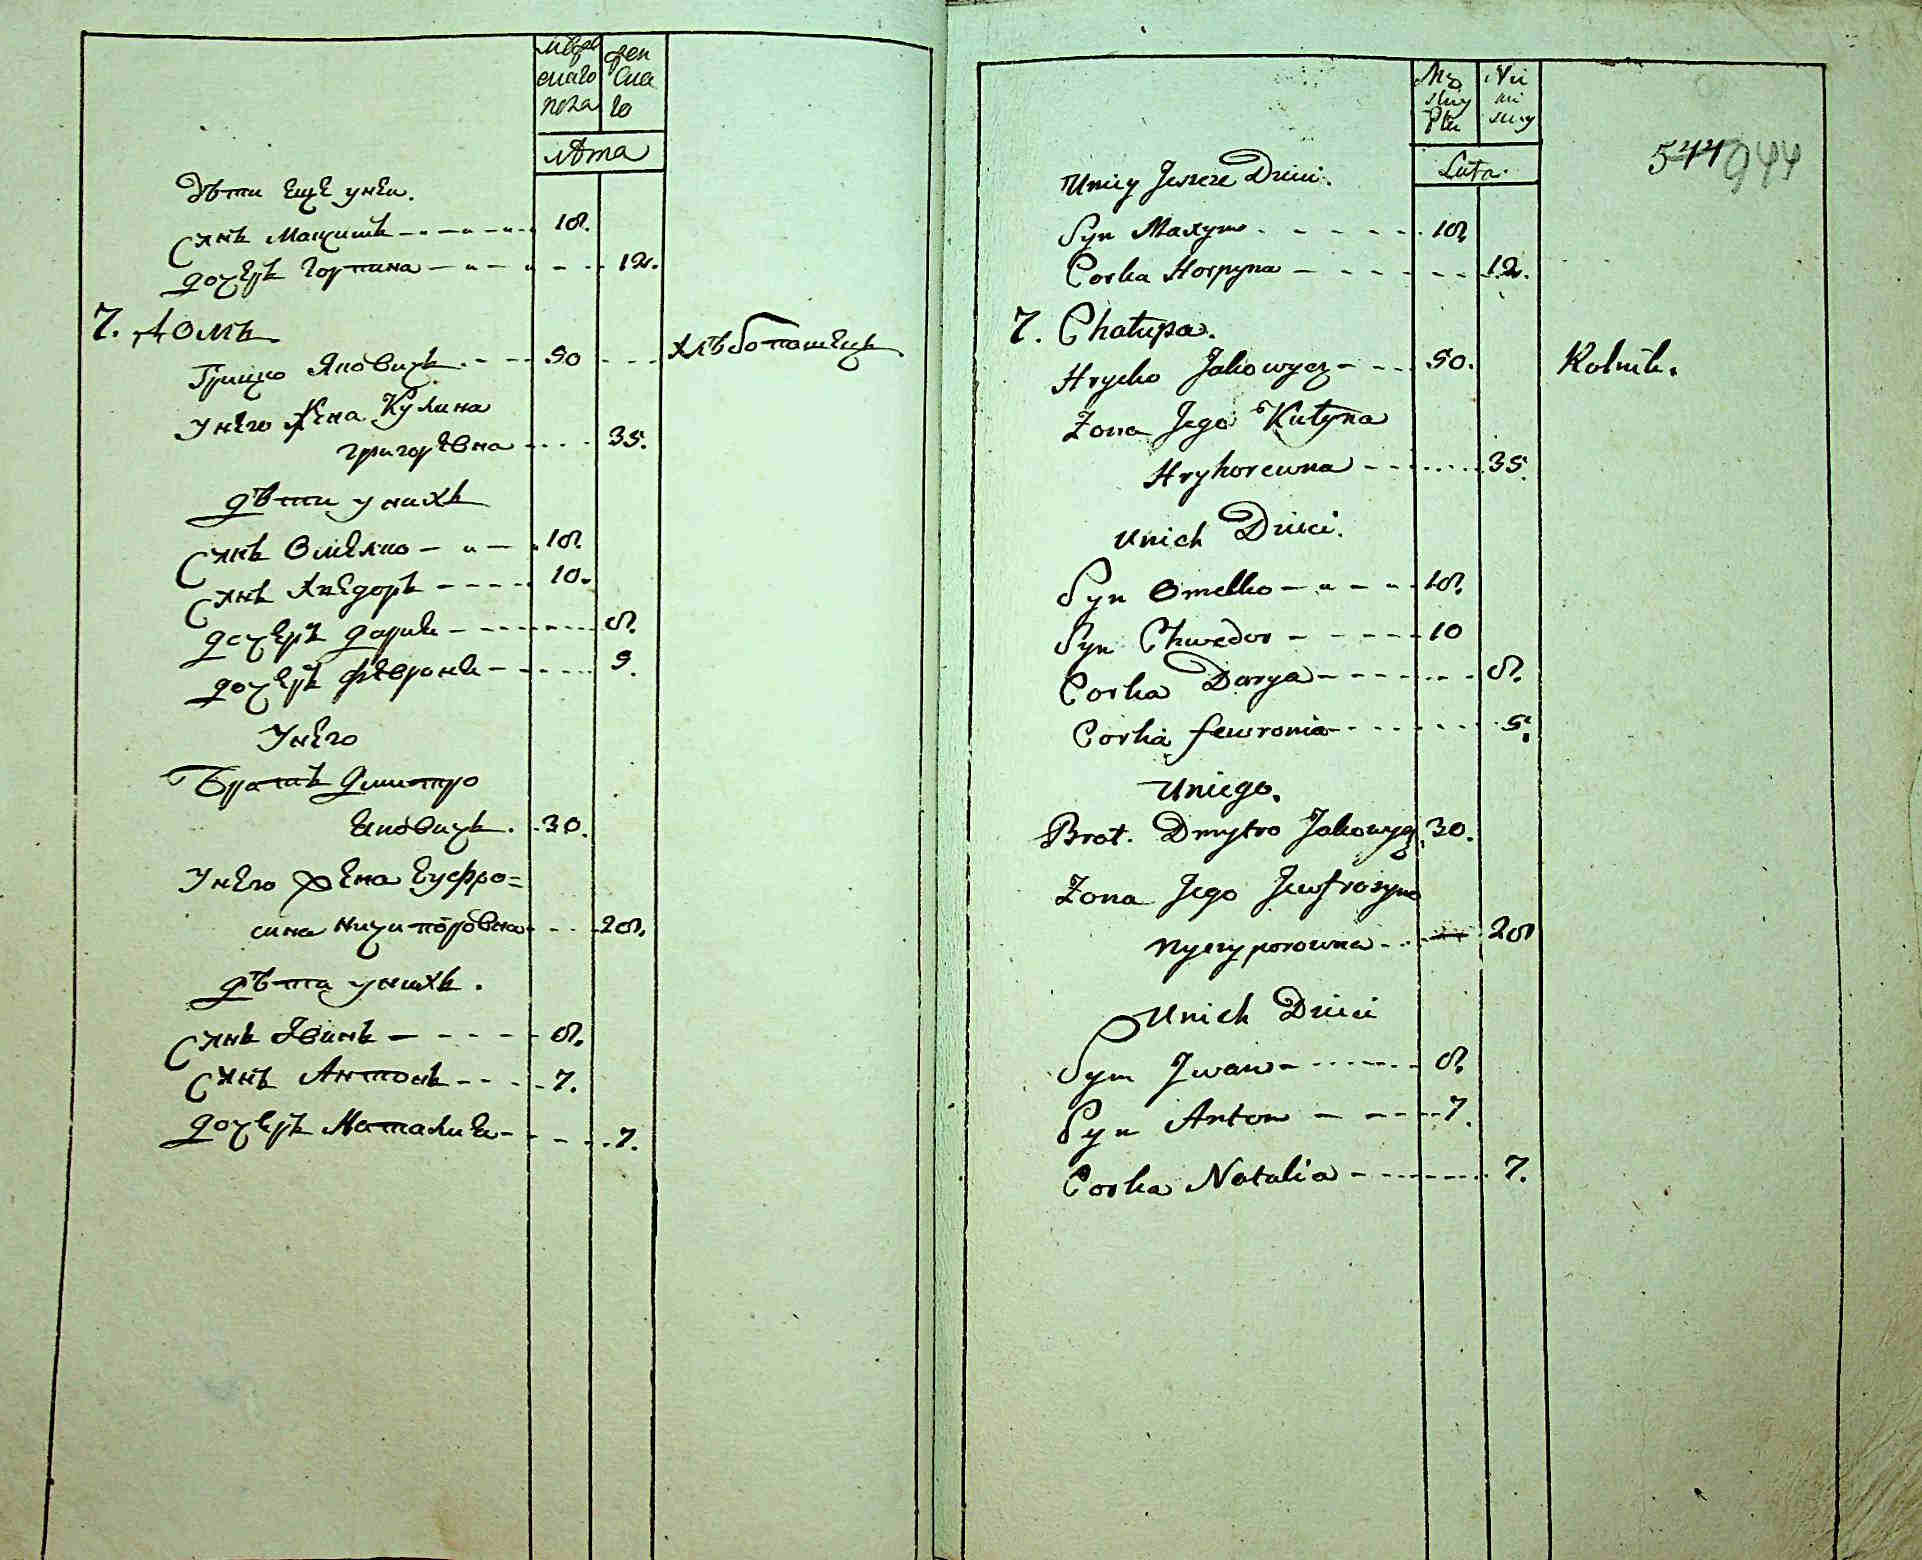 мужескаго пола
женскаго
лѣта
дѣти еще унеи.
Сынъ Маѯимъ 18.
дочерь Горпина 12.
7. Домъ.
Грицко Яковичъ. 50 хлѣбопашецъ
Унего жена Кулина
григорѣвна 35.
дѣти унихъ
Сынъ Омелко 18.
Сынъ Хведоръ 10.
дочерь дария 8.
дочерь февронея 5.
Унего
Братъ Дмитро
Яковичъ. 30.
Унего жена Еуфро=
сина Ничипоровна 28.
дѣти унихъ.
Сынъ Иванъ 8.
Сынъ Антонъ 7.
дочерь Наталия 7.
Męz
skiey
Płci
Nie
wi
sciey
Lata.
544 944
Uniey Jeszcze Dzieci.
Syn Maxym 18.
Corka Horpyna 12.
7. Chałupa.
Hrycko Jakowycz 50. Rolnik.
Zona Jego Kulyna
Hryhorewna 35.
Unich Dzieci.
Syn Omelko 18.
Syn Chwedor 10
Corka Darya 8.
Corka fewronia 5.
Uniego.
Brat. Dmytro Jakowycz 30.
Zona Jego Jewfrosyna
Nyczyporowna 28
Unich Dzieci
Syn Jwan 8.
Syn Anton 7.
Corka Natalia 7.